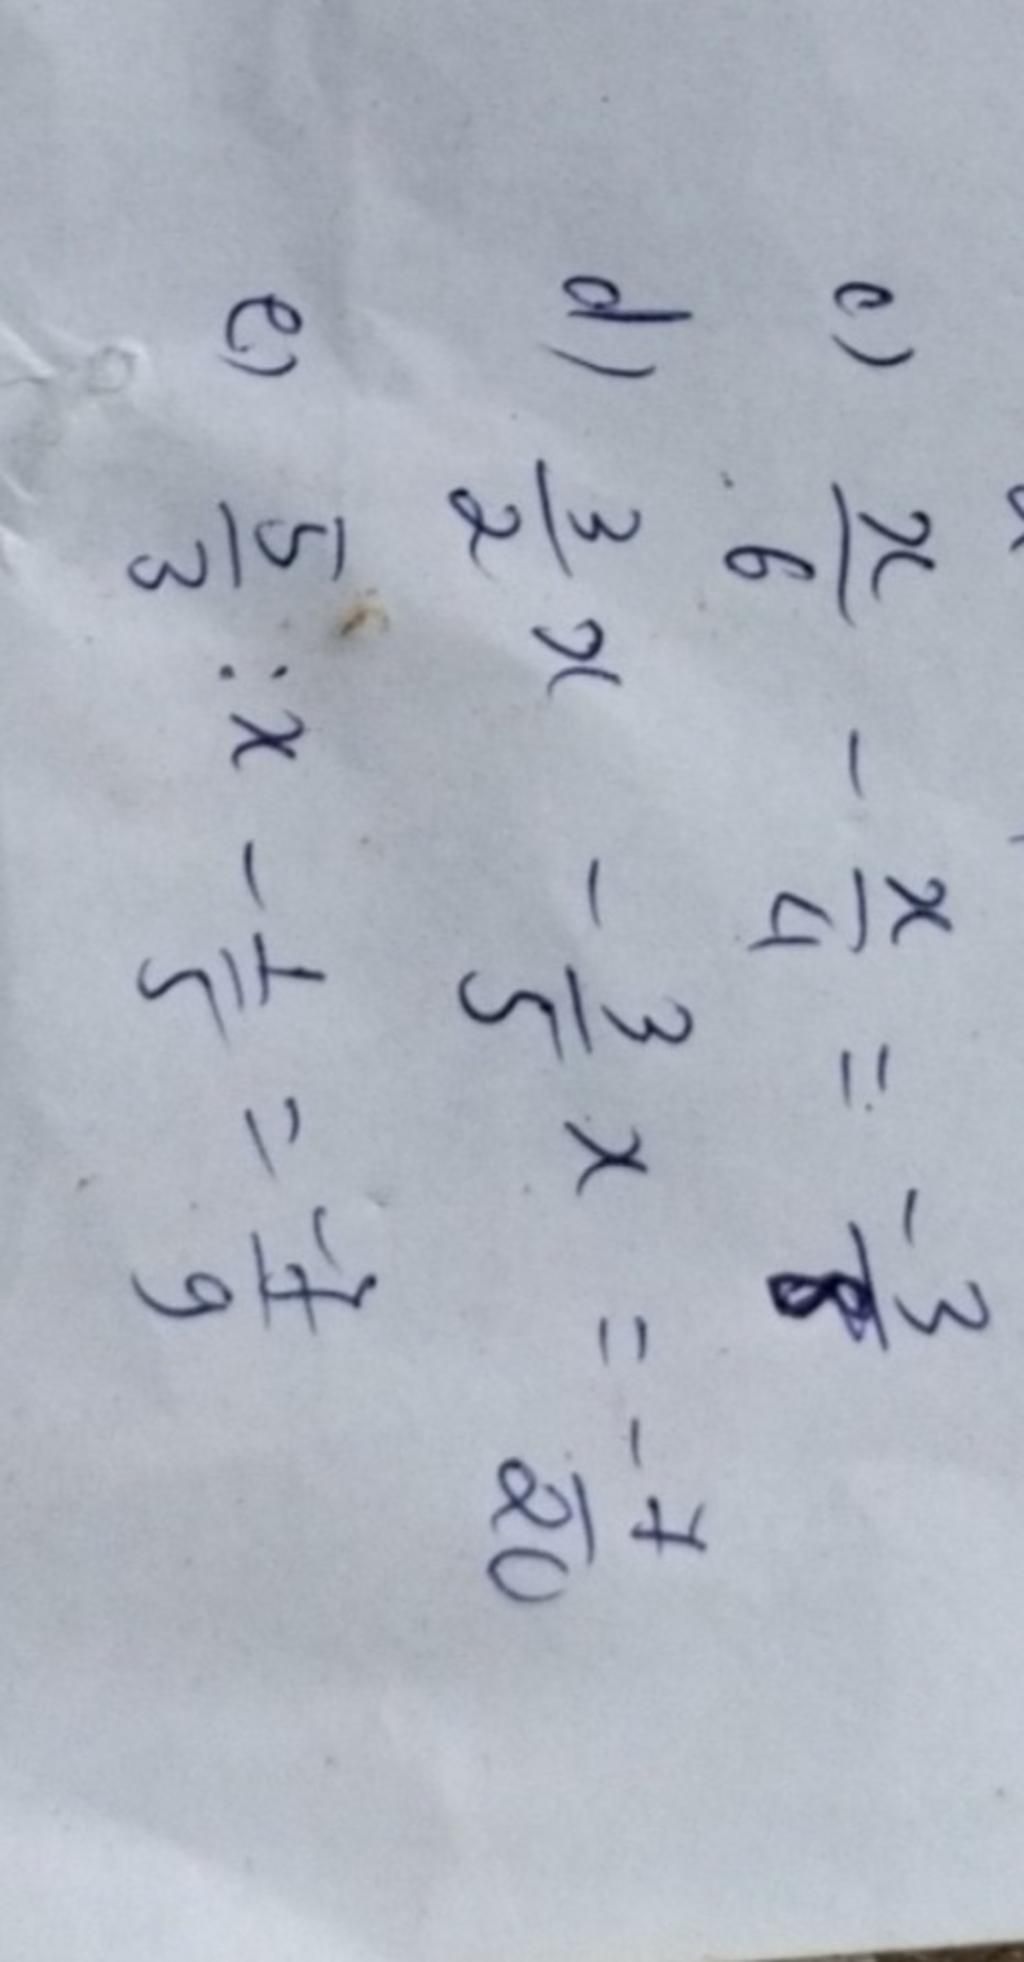 c) x/6 - x/4 = -3/8
d) 3/2 x - 3/5 x = -7/20
e) 5/3 : x - 1/5 = -7/9